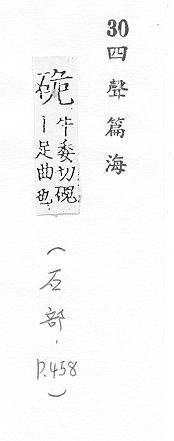 30四聲篇海
硊牛委切硯
丨足曲也
(石部,P.458)